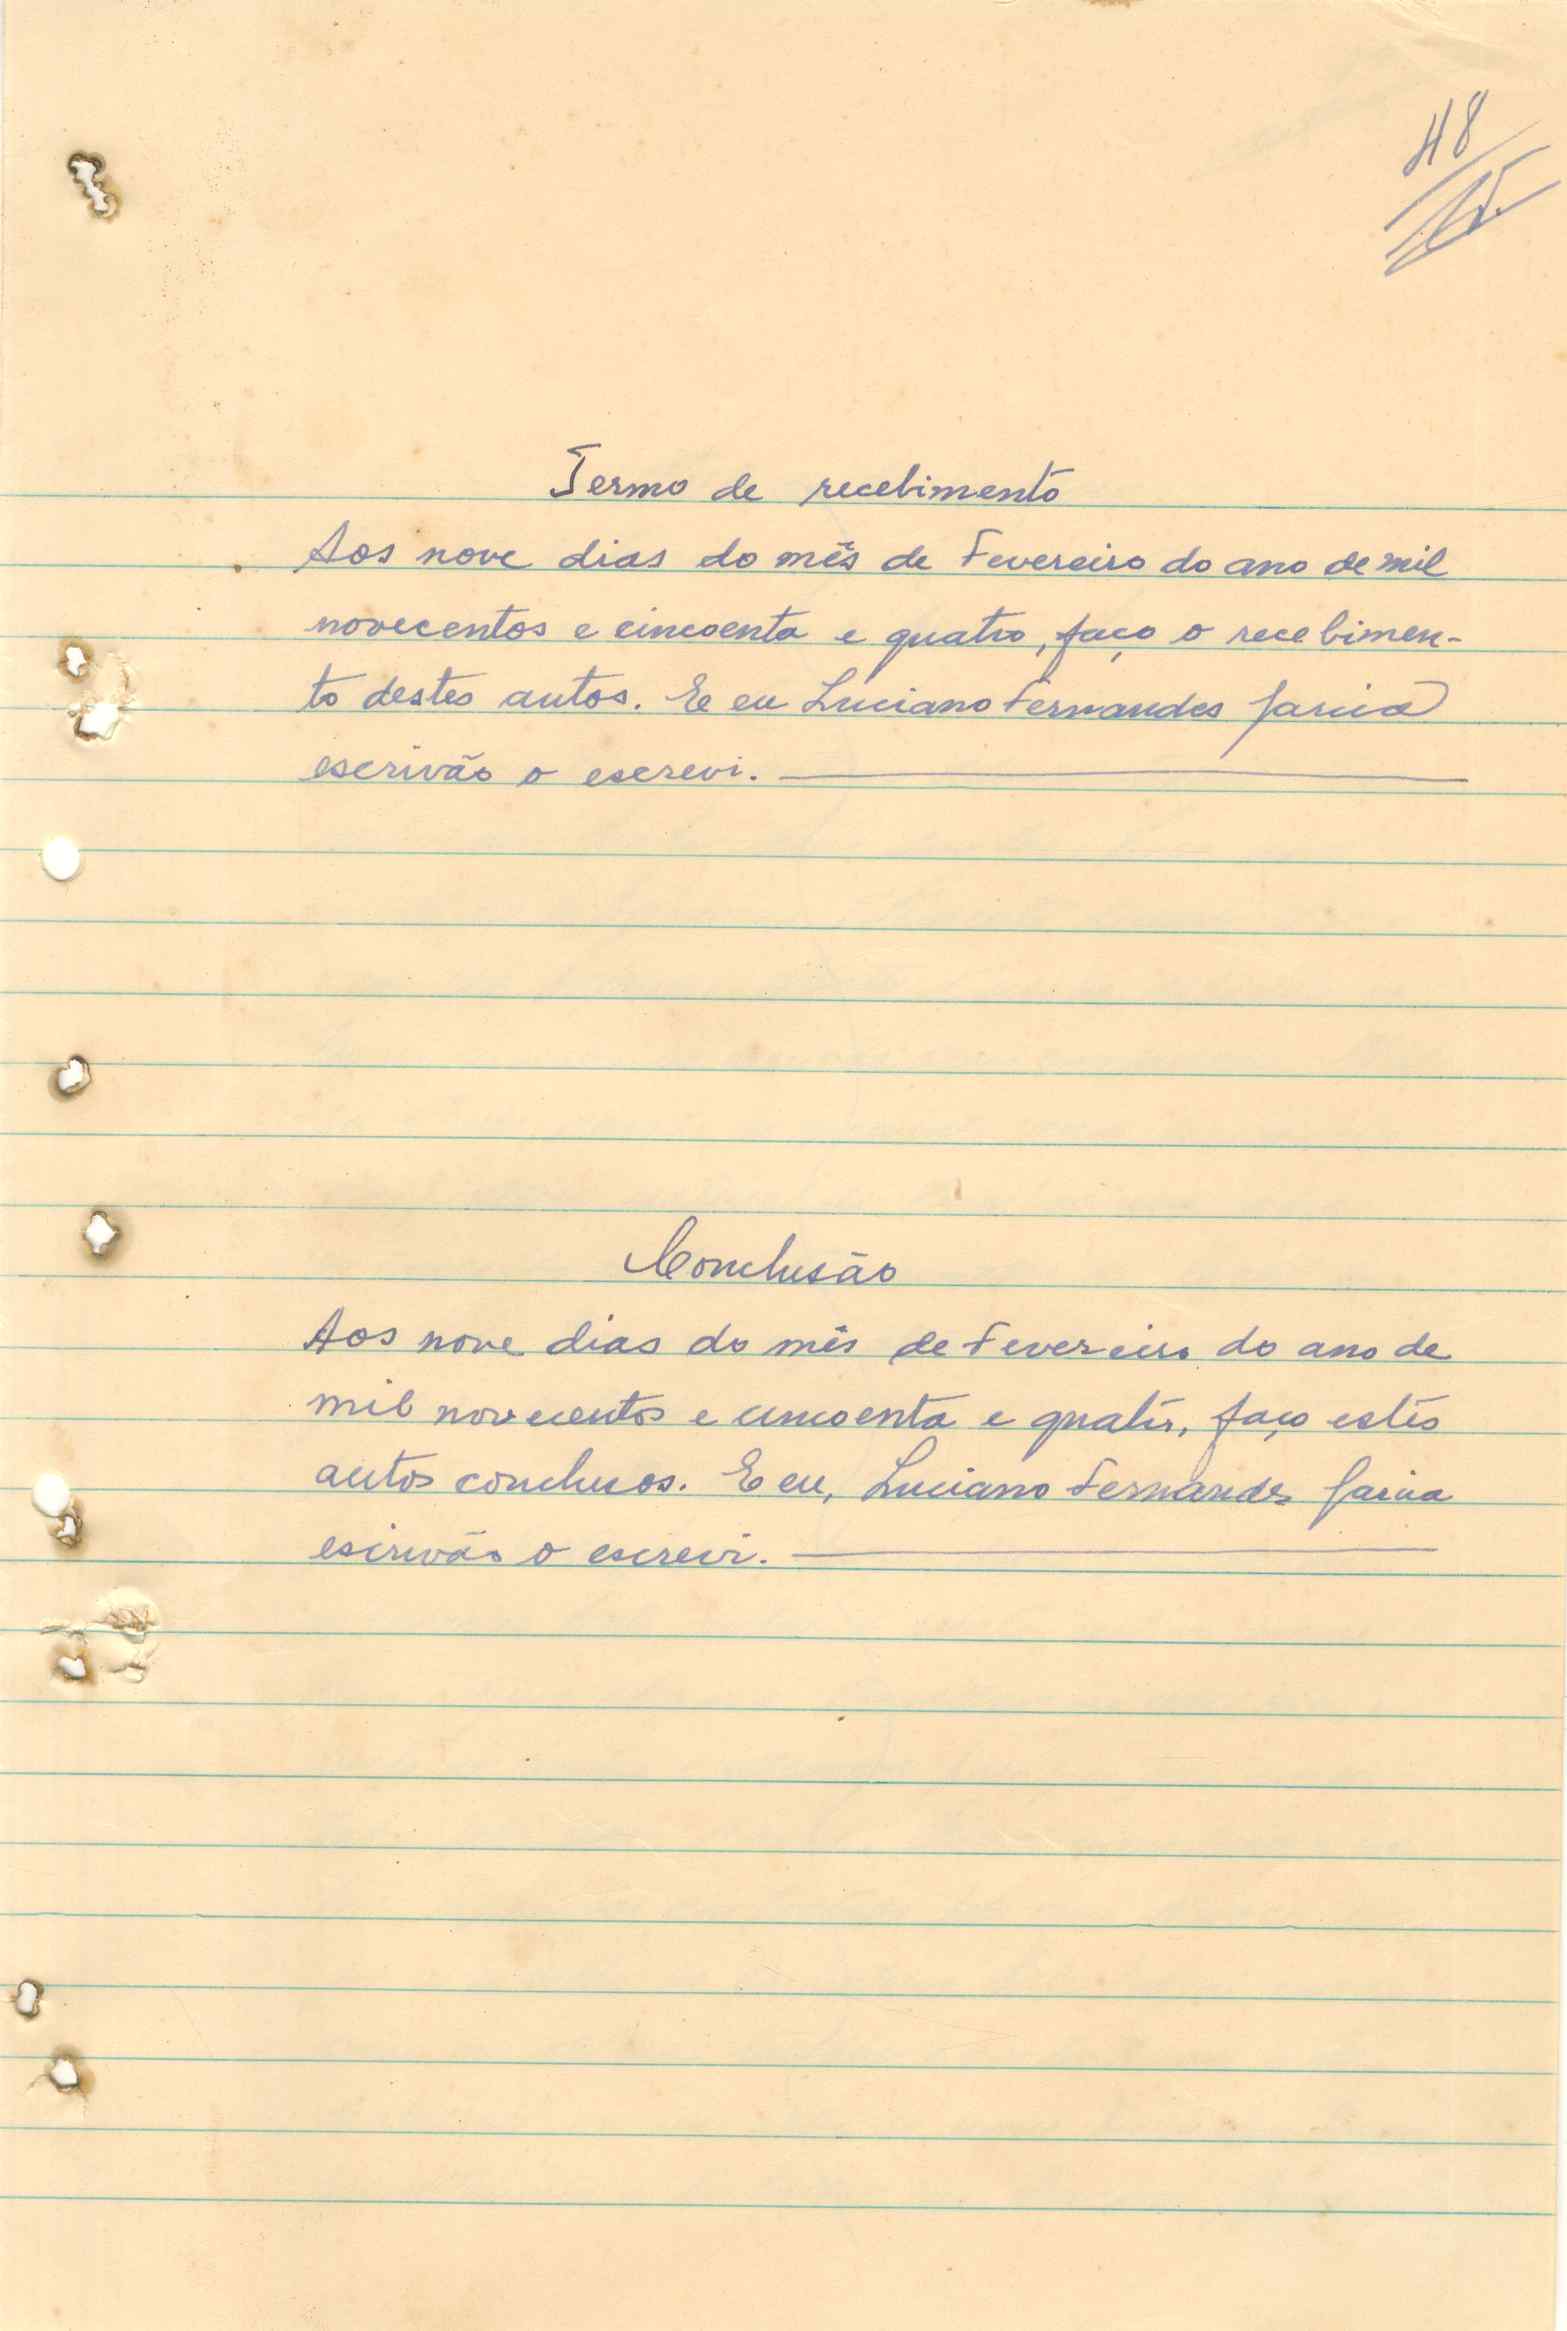 48
Termo de recebimento
Aos nove dias do mês de Fevereiro do ano de mil
novecentos e cincoenta e quatro, faço o recebimen-
to destes autos. E eu Luciano Fernandes Faria
escrivão o escrevi.
Conclusão
Aos nove dias do mês de Fevereiro do ano de
mil novecentos e cincoenta e quatro, faço estes
autos conclusos. E eu, Luciano Fernandes Faria
escrivão o escrevi.